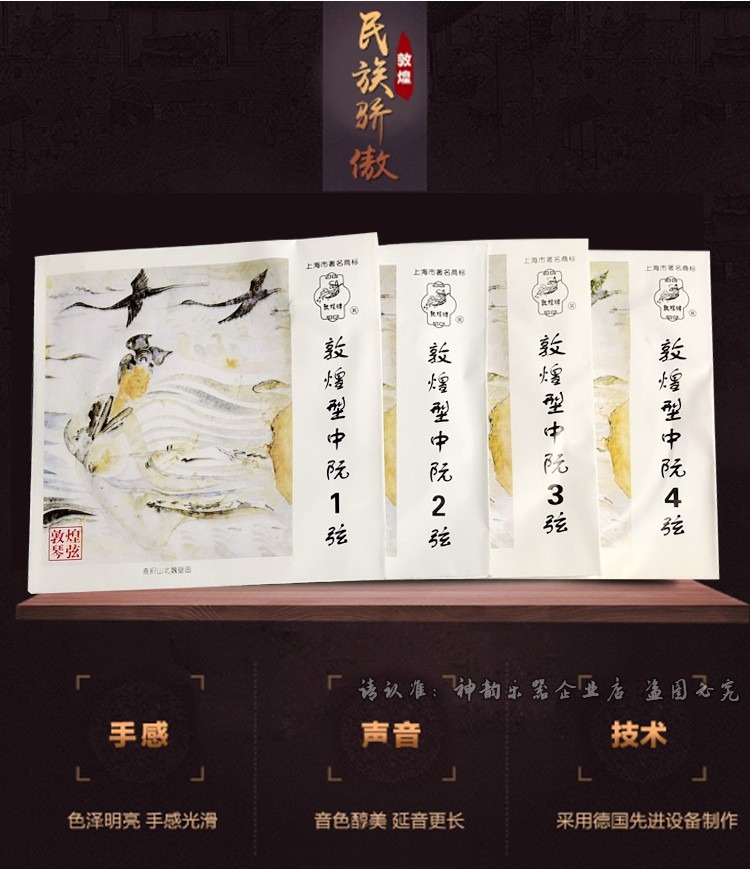 民族骄傲
敦煌
上海市著名商标
敦煌牌
®
敦煌型中阮1弦
敦煌
琴弦
麦积山北魏壁画
上海市著名商标
敦煌牌
®
敦煌型中阮2弦
上海市著名商标
敦煌牌
®
敦煌型中阮3弦
上海市著名商标
敦煌牌
®
敦煌型中阮4弦
请认准：神韵乐器企业店 盗图必究
手感
声音
技术
色泽明亮 手感光滑
音色醇美 延音更长
采用德国先进设备制作